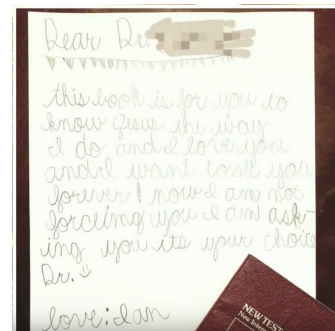 Dear Dr.
this book is for you to
know Jesus the way
I do and I love you
and I want to see you
forever! now I am not
forceing you I am ask-
ing you its your choice
Dr.
love: Ian
NEW TEST
New Intern